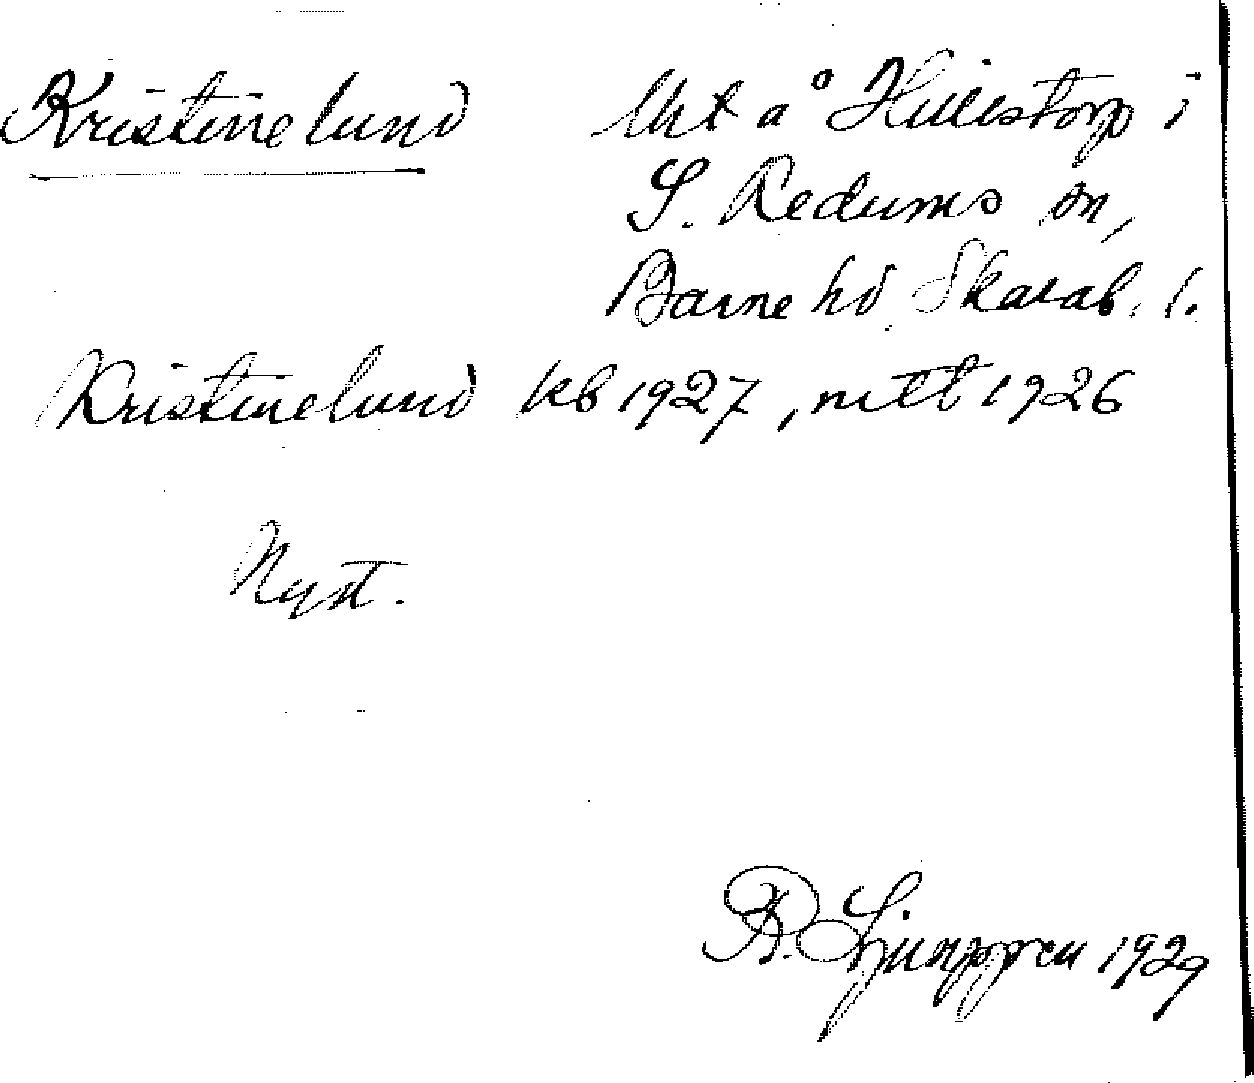 Kristinelund
Uxt å Hillestorp i
S. Kedums sn,
Barne hd Skarab. l.
Kristinelund kb 1927, mtl 1926
Nyst.
R. Ljunggren 1929